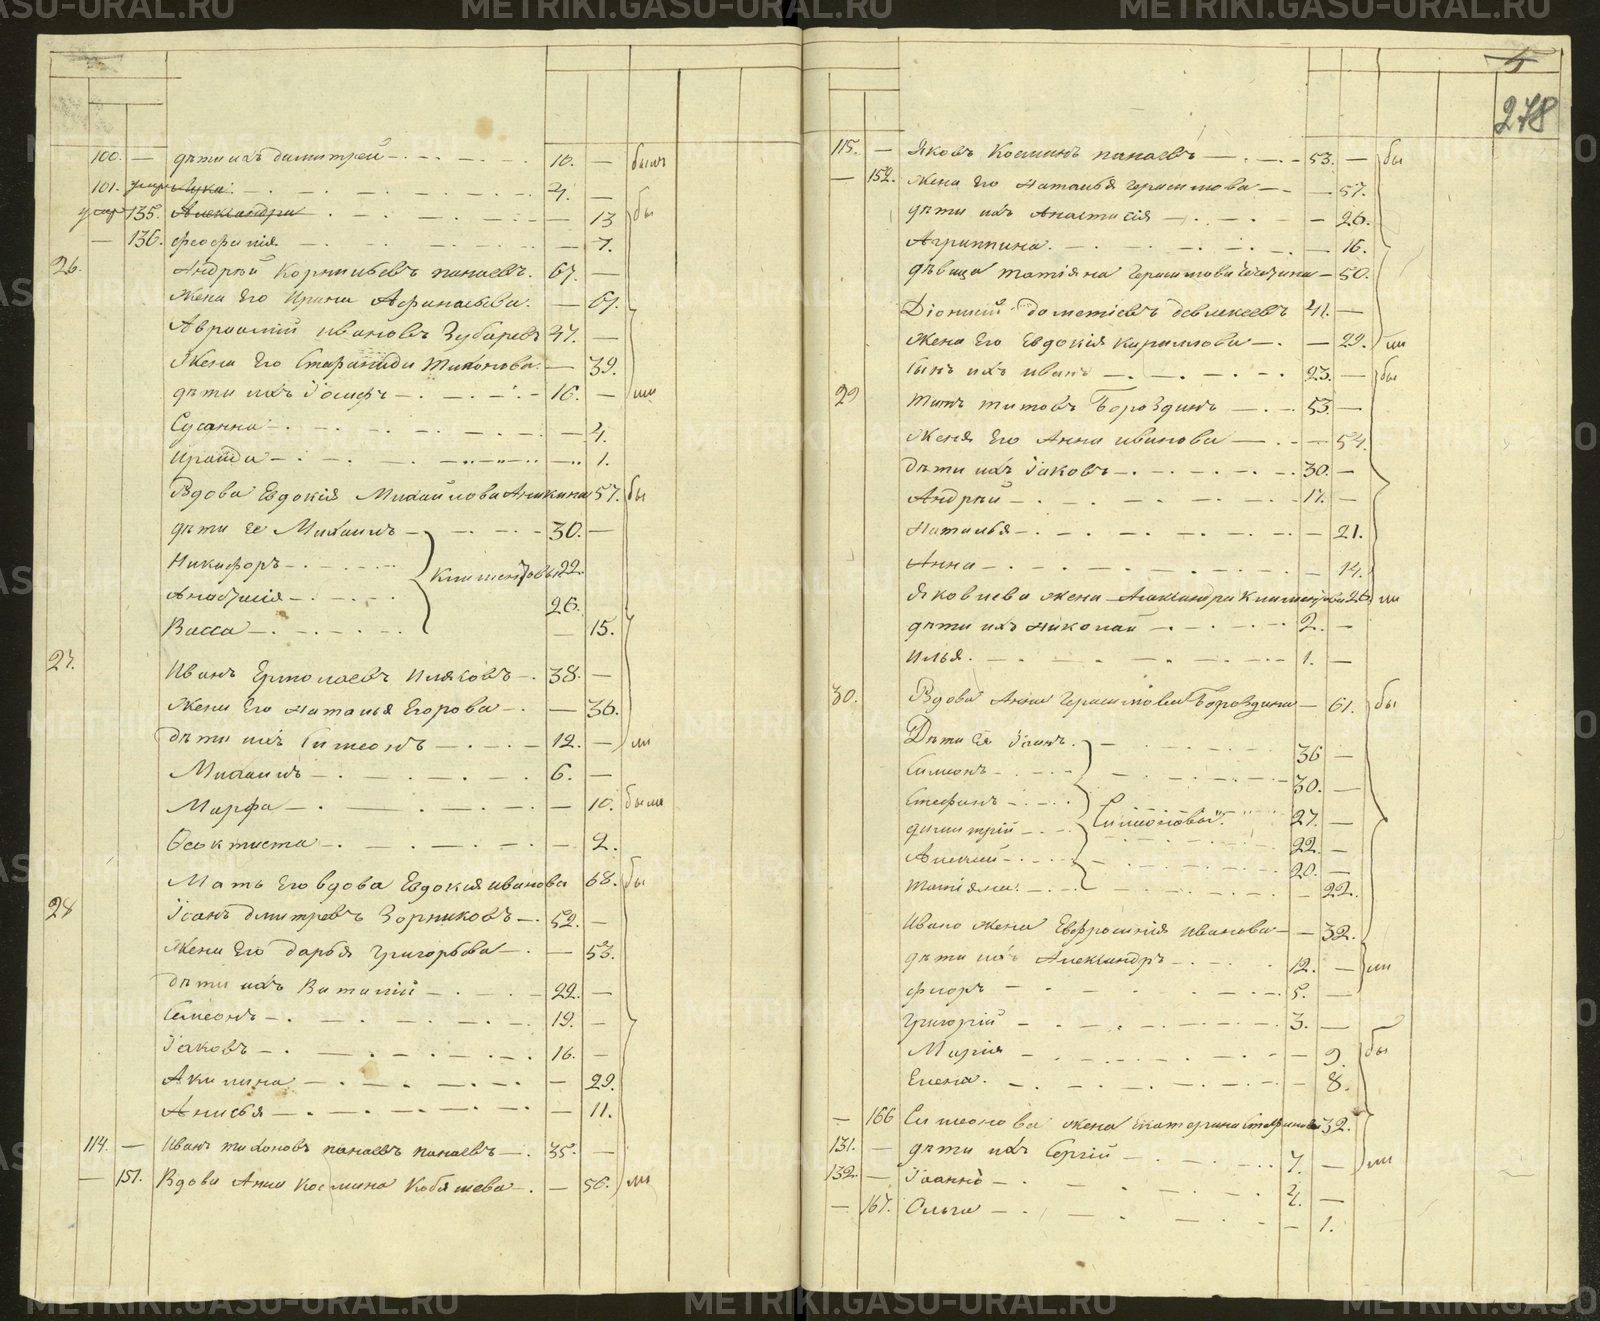 METRIKI.GASU-URAL.RU
100. — дѣти ихъ Димитрей — 10. — былъ
101. умеръ Лука — 4. —
умер 135. Александра — 13 бы
— 136. Феофанія — 7.
26. Андрѣй Корнильевъ Панаевъ. 67. —
Жена Его Ирина Афанасьева. — 67.
Авраамій Ивановъ Зубаревъ 47. —
Жена Его Стефанида Тихонова. — 39.
дѣти ихъ Іосифъ — 16. — ли
Сусанна — 4.
Ираида — 1.
Вдова Евдокія Михайлова Аникина 57. бы
дѣти Ее Михаилъ — 30. —
Никифоръ — Климентовы 22.
Анастасія — 26.
Васса — 15.
27. Иванъ Ермолаевъ Иляковъ — 38. —
Жена Его Наталья Егорова — 36.
дѣти ихъ Симеонъ — 12. — ли
Михаилъ — 6. —
Марфа — 10. была
Феоктиста — 2.
Мать Его вдова Евдокія Иванова 68. бы
28 Іоанъ Дмитревъ Зорниковъ — 52. —
Жена Его Дарья Григорьева — 53.
дѣти ихъ Виталій — 22. —
Симеонъ — 19. —
Іаковъ — 16. —
Акилина — 29.
Анисья — 11.
114. — Иванъ Тихоновъ Панаевъ Панаевъ — 35. —
— 151. Вдова Анна Космина Кобяшева — 56. ли
5
278
115. — Яковъ Косминъ Панаевъ — 53. — бы
— 152. Жена Его Наталья Герасимова — 57.
дѣти ихъ Анастасія — 26.
Агриппина — 16.
дѣвица Татіяна Герасимова — 50.
Діонисій Дометіевъ Девлекеевъ 41. —
Жена Его Евдокія Кирилова — 29. ли
Сынъ ихъ Иванъ — 23. — бы
29 Титъ Титовъ Бороздинъ — 53. —
Жена Его Анна Иванова — 54.
дѣти ихъ Іаковъ — 30. —
Андрѣй — 17. —
Наталья — 21.
Анна — 14.
Яковлева жена Александра Климентова 26. ли
дѣти ихъ Николай — 2. —
Илья — 1. —
30. Вдова Анна Герасимова Бороздина — 61. бы
Дѣти Ея Іоанъ. — 36 —
Симеонъ — 30. —
Стефанъ — Симеоновы 27. —
Димитрій — 22. —
Алексей — 20. —
Татіяна. — 22.
Ивана жена Евфросинія Иванова — 32.
дѣти ихъ Александръ — 12. — ли
Флоръ — 5. —
Григорій — 3. —
Марія — 9. бы
Елена. — 8.
— 166 Симеонова жена Екатерина Стефанова 32.
131. — дѣти ихъ Сергій — 7. — ли
132. — Іоаннъ — 4. —
— 167. Ольга — 1.